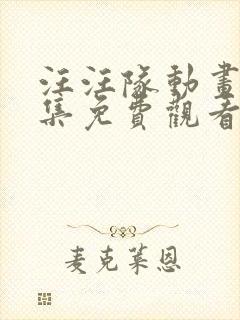 汪汪隊動畫
集免費觀看
麦克莱恩